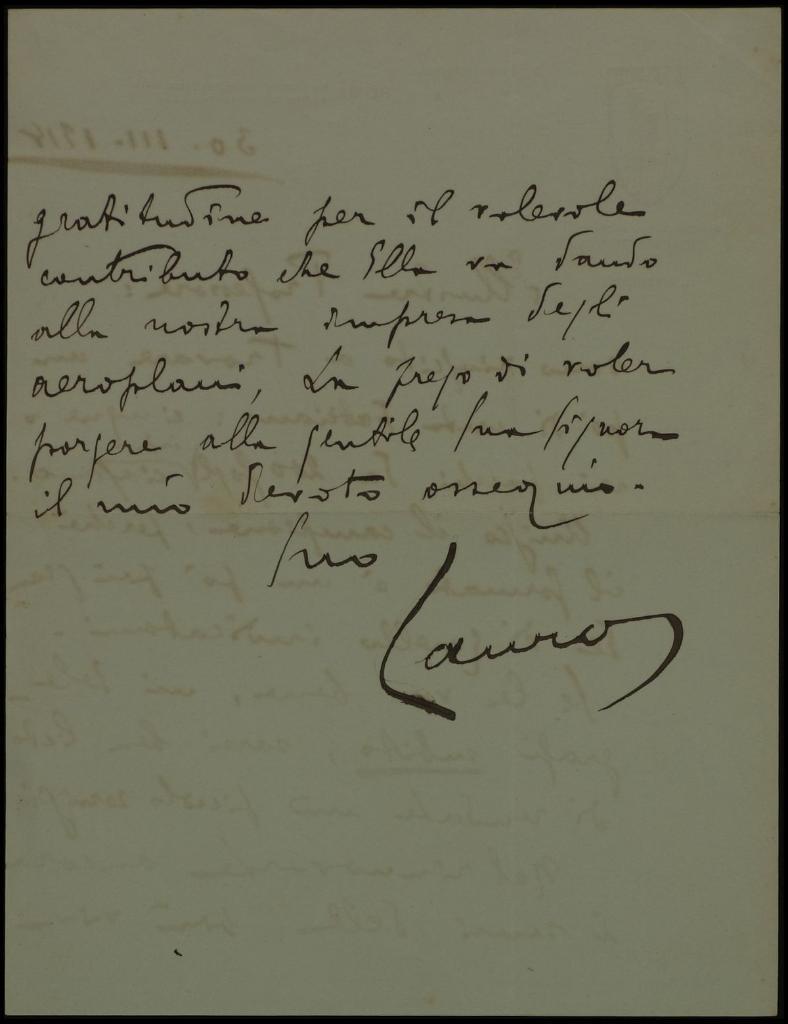 gratitudine per il valevole
contributo che Ella va dando
alla nostra impresa degli
aeroplani, La prego di voler
porgere alla gentile Sua Signora
il mio devoto ossequio.
Suo
Lauro